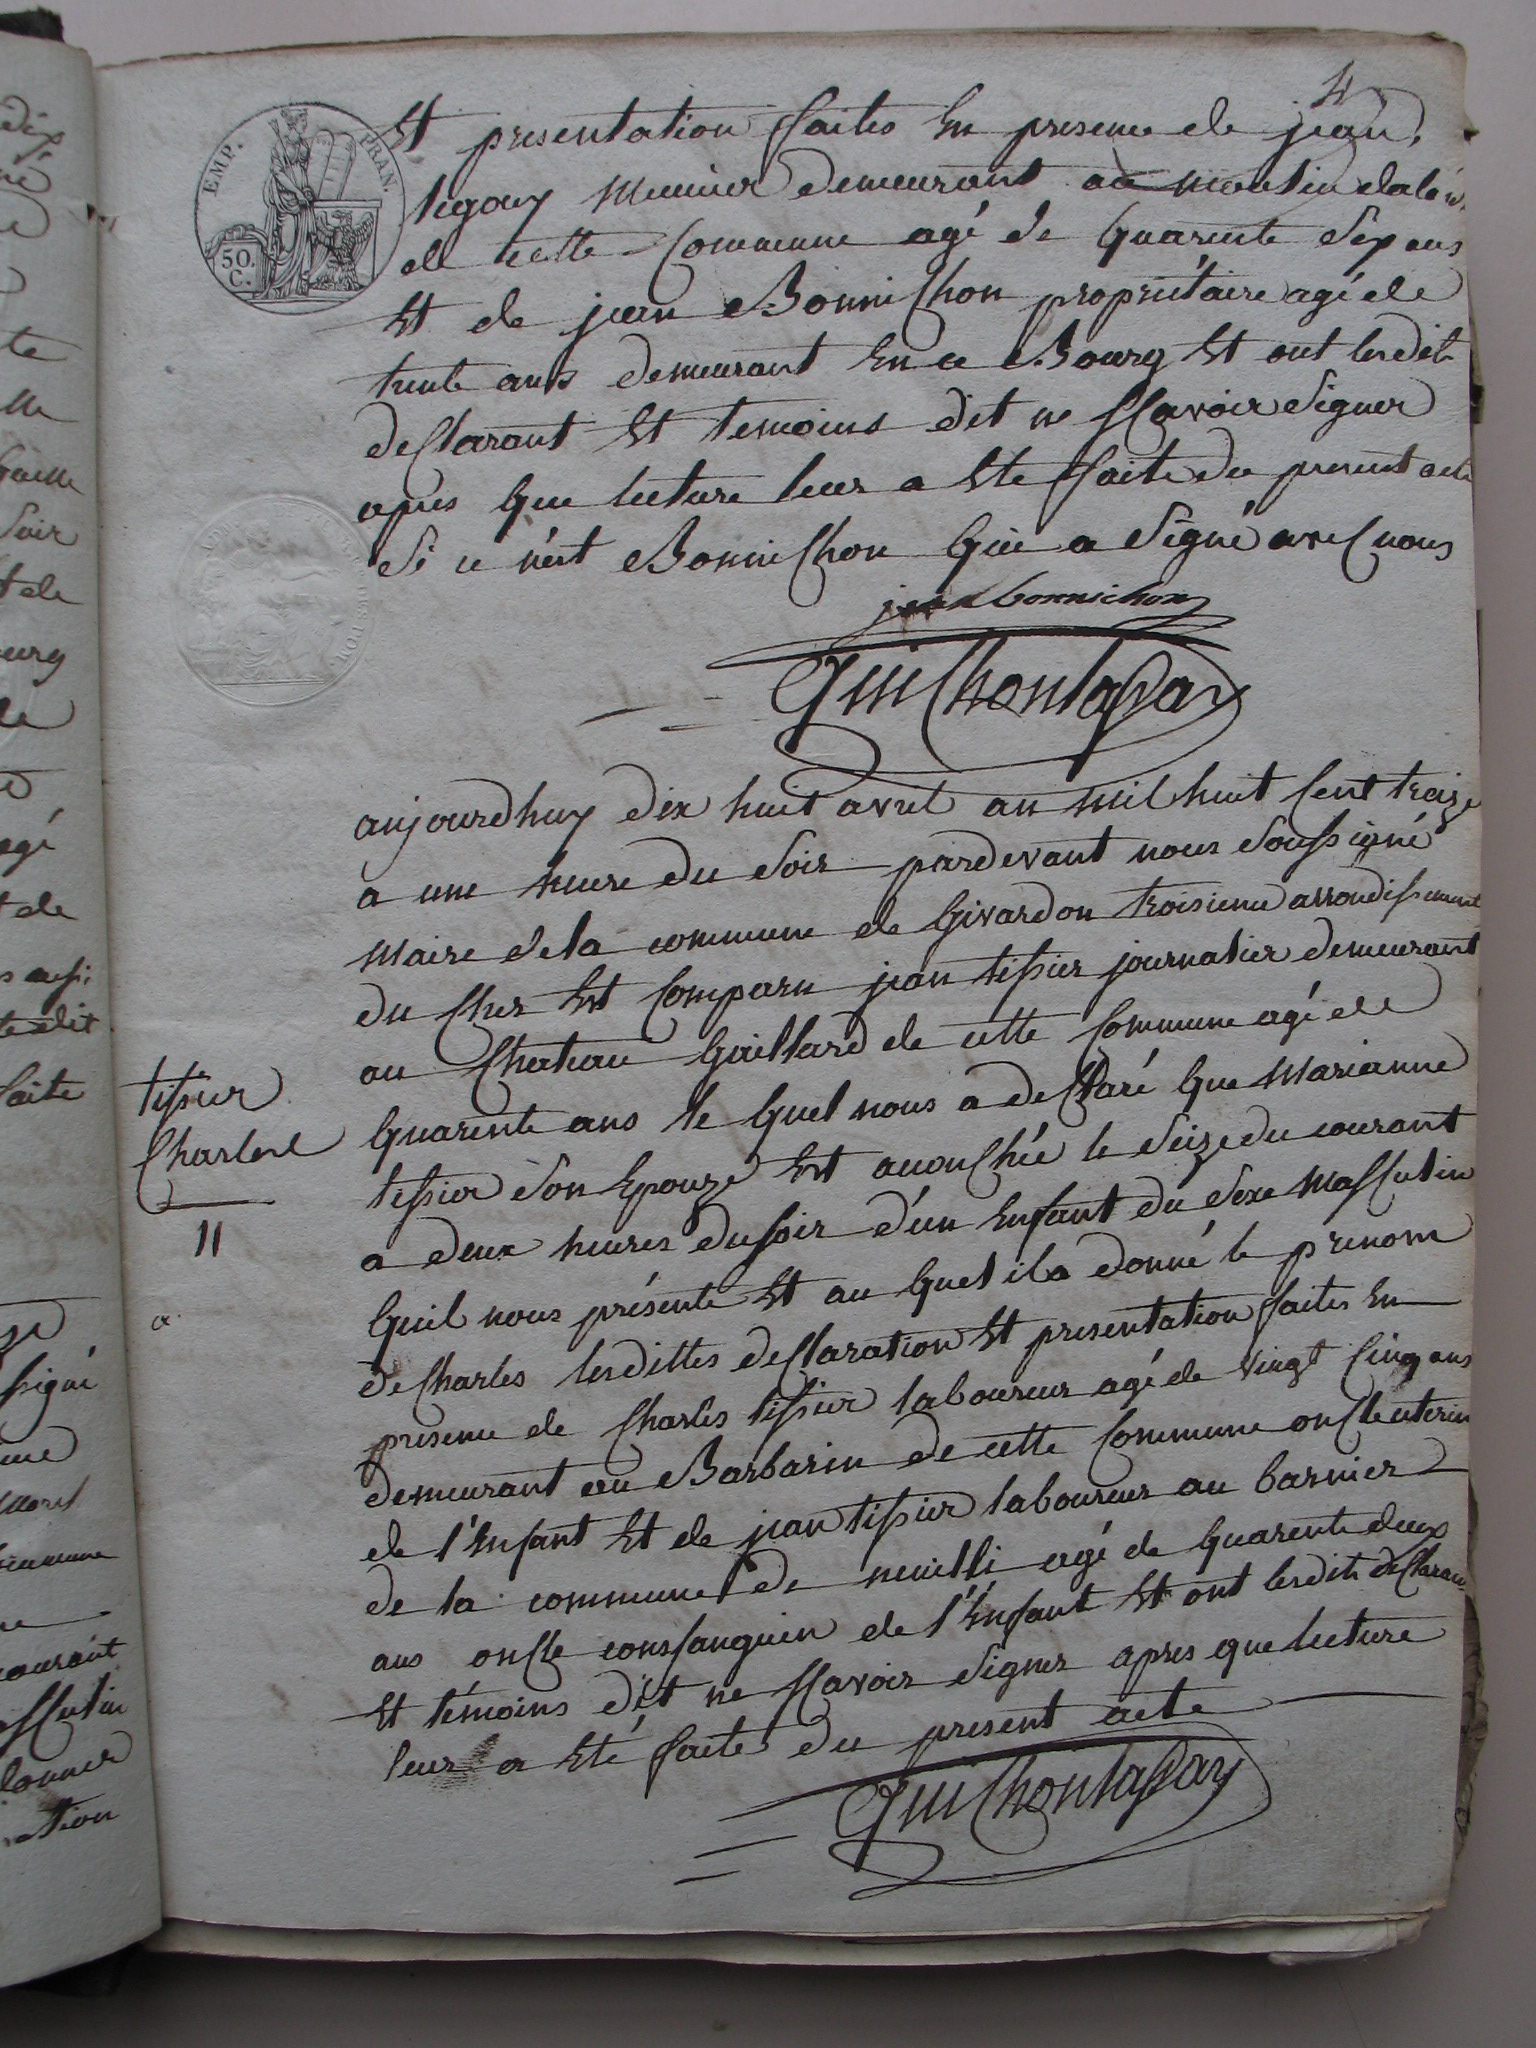 4
EMP. FRAN.
50. C.
Et presentation faites En presence de jean
legouy meunier demeurant au moulin
de cette Commune agé de quarente Sept ans
Et de jean Bonnichon propriétaire agé de
trente ans demeurant En ce Bourg Et ont lesdits
desclarant Et temoins dit ne sçavoir Signer
apres que lecture leur a Ete faite du present acte
Si ce n'est Bonnichon Qui a Signé avec nous
jean bonnichon
Guichontaffay
aujourdhuy dix huit avril an mil huit Cent treize
a une heure du Soir pardevant nous Soussigné
Maire de la commune de Givardon troisieme arrondissement
du Cher Est Comparu jean tissier journalier demeurant
au Chateau Gaillard de cette Commune agé de
tissier
Charles
11
Quarente ans le Quel nous a desclaré Que Marianne
tissier Son Epouze Est accouchée le Seize du courant
a deux heures du soir d'un Enfant du Sexe Masculin
Quil nous présente Et au Quel il a donné le prenom
de Charles lesdittes desclaration Et presentation faites En
presence de Charles tissier laboureur agé de vingt Cinq ans
demeurant au Barbarin de cette Commune oncle uterin
de l'Enfant Et de jean tissier laboureur au barnier
de la commune de neuilli agé de Quarente deux
ans oncle consanguin de l'Enfant Et ont lesdits desclarant
Et témoins dit ne sçavoir Signer apres que lecture
leur a Eté faite du present acte
Guichontaffay